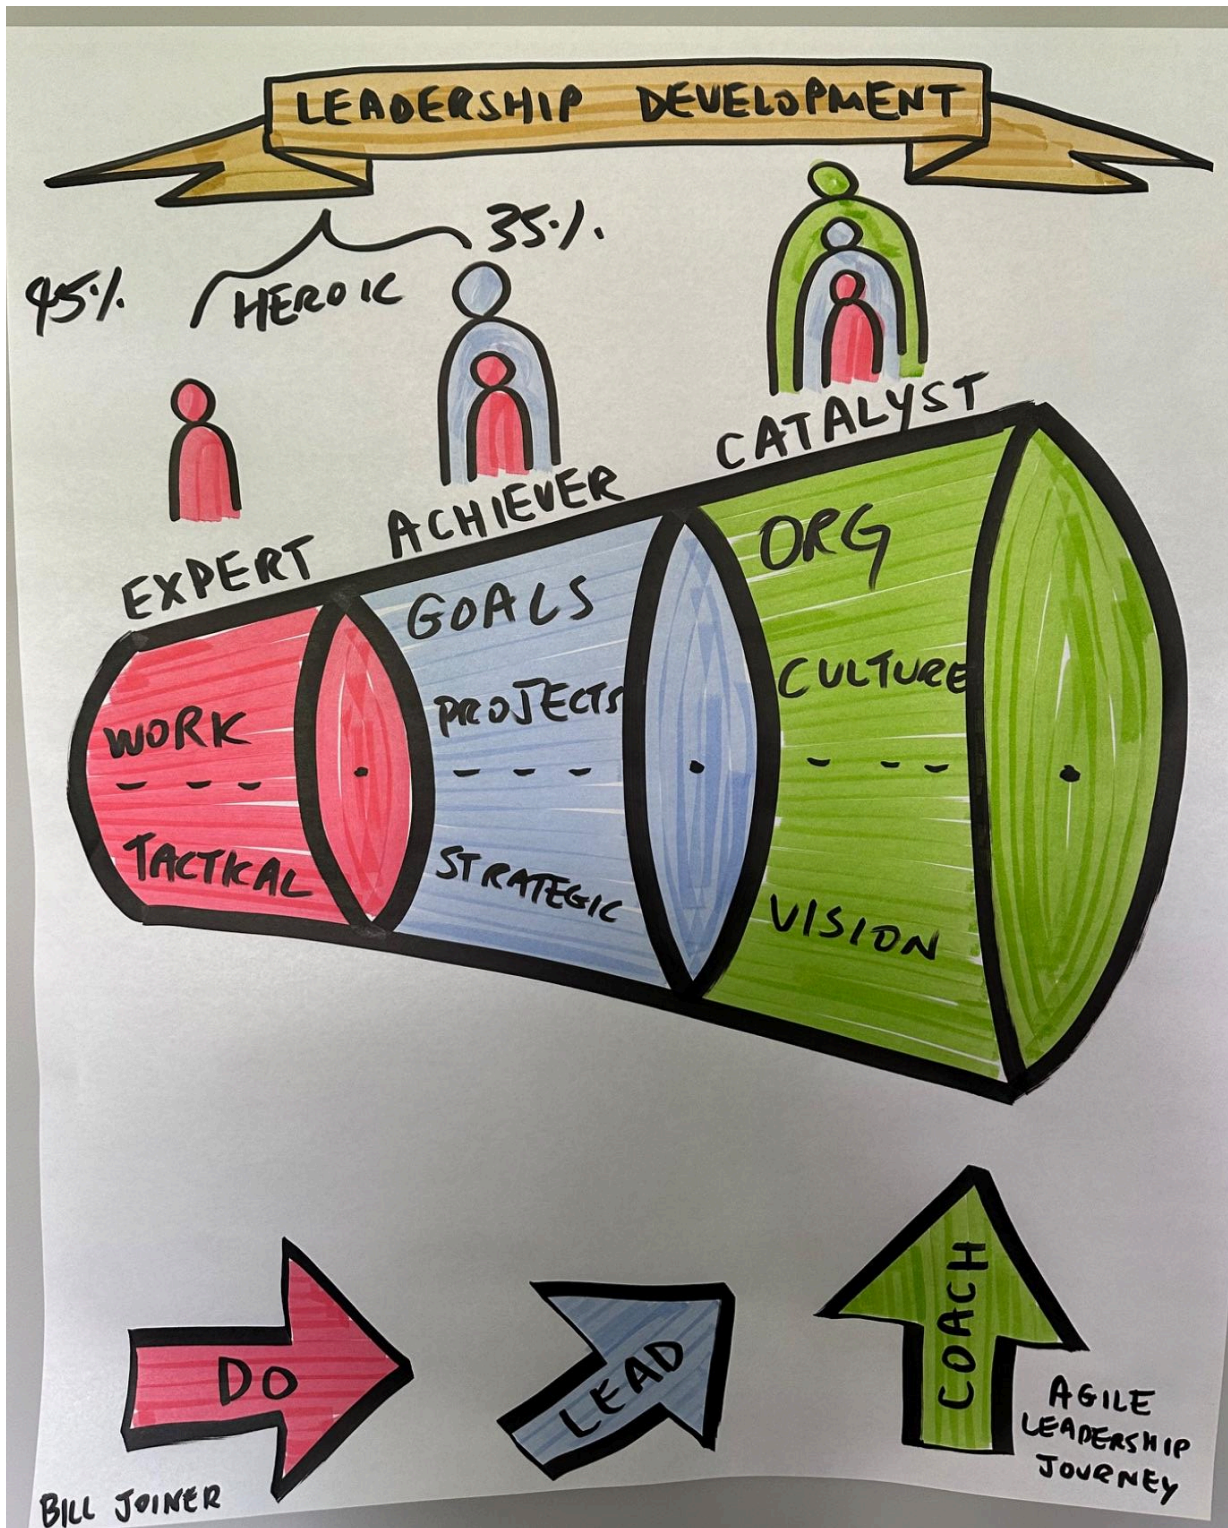 LEADERSHIP DEVELOPMENT
45%
HEROIC
35%
EXPERT
ACHIEVER
CATALYST
WORK
TACTICAL
GOALS
PROJECTS
STRATEGIC
ORG
CULTURE
VISION
DO
LEAD
COACH
BILL JOINER
AGILE
LEADERSHIP
JOURNEY